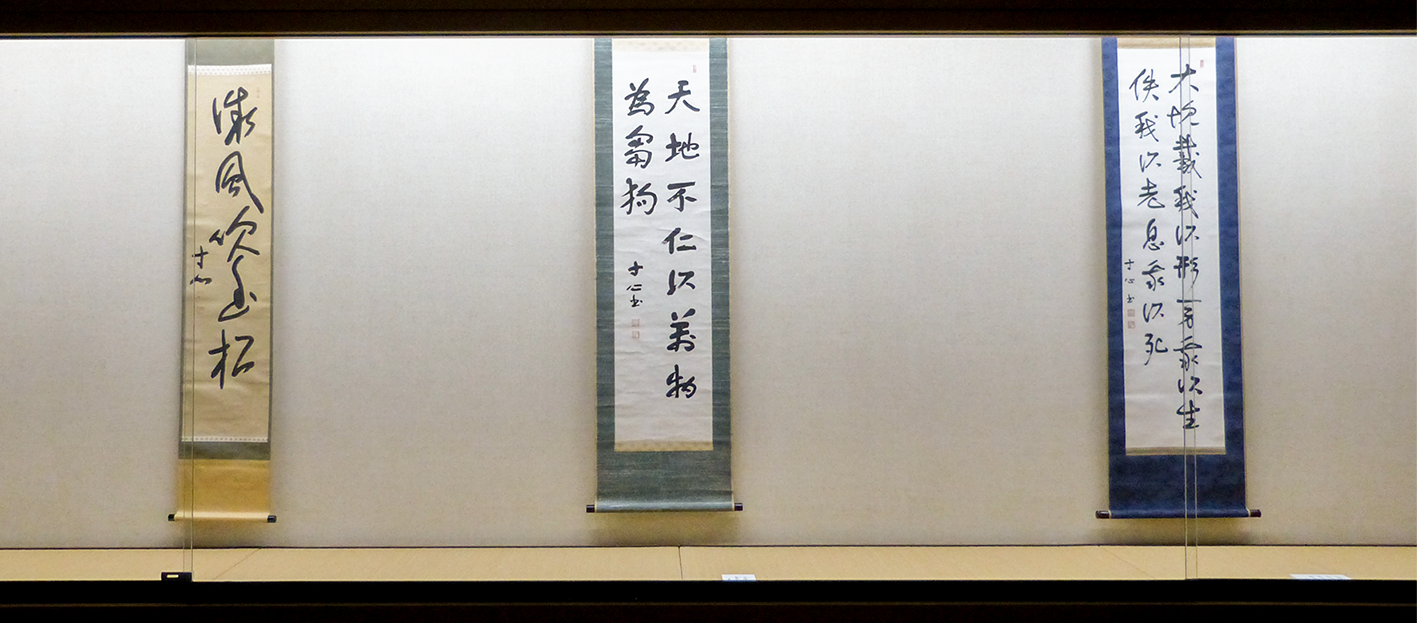 大塊載我以形勞我以生
佚我以老息我以死
寸心書
天地不仁以萬物
為芻狗
寸心書
微風吹幽松
寸心